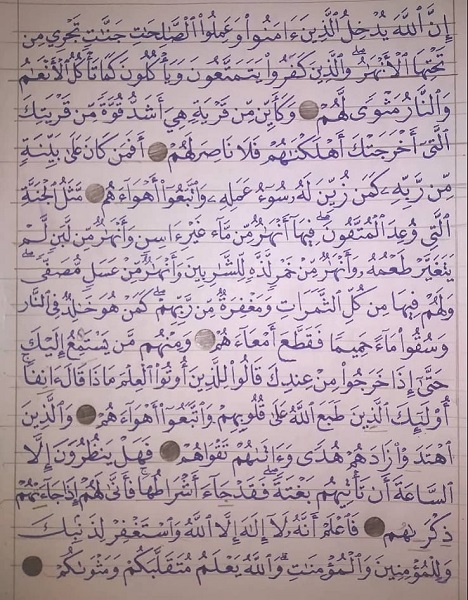 إِنَّ ٱللَّهَ يُدۡخِلُ ٱلَّذِينَ ءَامَنُواْ وَعَمِلُواْ ٱلصَّٰلِحَٰتِ جَنَّٰتٖ تَجۡرِي مِن
تَحۡتِهَا ٱلۡأَنۡهَٰرُۖ وَٱلَّذِينَ كَفَرُواْ يَتَمَتَّعُونَ وَيَأۡكُلُونَ كَمَا تَأۡكُلُ ٱلۡأَنۡعَٰمُ
وَٱلنَّارُ مَثۡوٗى لَّهُمۡ وَكَأَيِّن مِّن قَرۡيَةٍ هِيَ أَشَدُّ قُوَّةٗ مِّن قَرۡيَتِكَ
ٱلَّتِيٓ أَخۡرَجَتۡكَ أَهۡلَكۡنَٰهُمۡ فَلَا نَاصِرَ لَهُمۡ أَفَمَن كَانَ عَلَىٰ بَيِّنَةٖ
مِّن رَّبِّهِۦ كَمَن زُيِّنَ لَهُۥ سُوٓءُ عَمَلِهِۦ وَٱتَّبَعُوٓاْ أَهۡوَآءَهُم مَّثَلُ ٱلۡجَنَّةِ
ٱلَّتِي وُعِدَ ٱلۡمُتَّقُونَۖ فِيهَآ أَنۡهَٰرٞ مِّن مَّآءٍ غَيۡرِ ءَاسِنٖ وَأَنۡهَٰرٞ مِّن لَّبَنٖ لَّمۡ
يَتَغَيَّرۡ طَعۡمُهُۥ وَأَنۡهَٰرٞ مِّنۡ خَمۡرٖ لَّذَّةٖ لِّلشَّٰرِبِينَ وَأَنۡهَٰرٞ مِّنۡ عَسَلٖ مُّصَفّٗىۖ
وَلَهُمۡ فِيهَا مِن كُلِّ ٱلثَّمَرَٰتِ وَمَغۡفِرَةٞ مِّن رَّبِّهِمۡۖ كَمَنۡ هُوَ خَٰلِدٞ فِي ٱلنَّارِ
وَسُقُواْ مَآءً حَمِيمٗا فَقَطَّعَ أَمۡعَآءَهُمۡ وَمِنۡهُم مَّن يَسۡتَمِعُ إِلَيۡكَ
حَتَّىٰٓ إِذَا خَرَجُواْ مِنۡ عِندِكَ قَالُواْ لِلَّذِينَ أُوتُواْ ٱلۡعِلۡمَ مَاذَا قَالَ ءَانِفًاۚ
أُوْلَٰٓئِكَ ٱلَّذِينَ طَبَعَ ٱللَّهُ عَلَىٰ قُلُوبِهِمۡ وَٱتَّبَعُوٓاْ أَهۡوَآءَهُمۡ وَٱلَّذِينَ
ٱهۡتَدَوۡاْ زَادَهُمۡ هُدٗى وَءَاتَىٰهُمۡ تَقۡوَىٰهُمۡ فَهَلۡ يَنظُرُونَ إِلَّا
ٱلسَّاعَةَ أَن تَأۡتِيَهُم بَغۡتَةٗۖ فَقَدۡ جَآءَ أَشۡرَاطُهَاۚ فَأَنَّىٰ لَهُمۡ إِذَا جَآءَتۡهُمۡ
ذِكۡرَىٰهُمۡ فَٱعۡلَمۡ أَنَّهُۥ لَآ إِلَٰهَ إِلَّا ٱللَّهُ وَٱسۡتَغۡفِرۡ لِذَنۢبِكَ
وَلِلۡمُؤۡمِنِينَ وَٱلۡمُؤۡمِنَٰتِۗ وَٱللَّهُ يَعۡلَمُ مُتَقَلَّبَكُمۡ وَمَثۡوَىٰكُمۡ